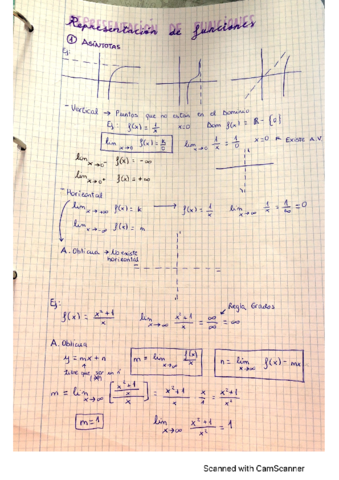 Representación de funciones
① ASÍNTOTAS
Ej:
- Vertical → Puntos que no están en el Dominio
Ej: f(x) = 1/x x=0 Dom f(x) = ℝ - {0}
lim x→0 f(x) = k/0 lim x→0 1/x = 1/0 x=0 Existe A.V
lim x→0⁻ f(x) = -∞
lim x→0⁺ f(x) = +∞
- Horizontal
lim x→+∞ f(x) = k → f(x) = 1/x lim x→∞ 1/x = 1/∞ = 0
lim x→-∞ f(x) = n
A. Oblicua → No existe
horizontal
Ej:
Regla Grados
f(x) = x²+1/x lim x→∞ x²+1/x = ∞/∞ = ∞
A. Oblicua
y = mx + n m = lim x→∞ f(x)/x n = lim x→∞ f(x) - mx
m = lim x→∞ [x²+1/x / x] = x²+1/x x/1 = x²+1/x²
m=1 lim x→∞ x²+1/x² = 1
Scanned with CamScanner